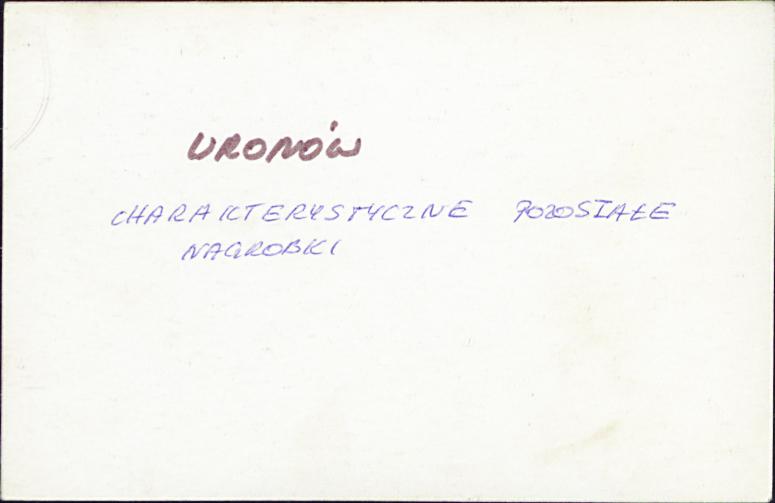 URONÓW
CHARAKTERYSTYCZNE POZOSTAŁE
NAGROBKI